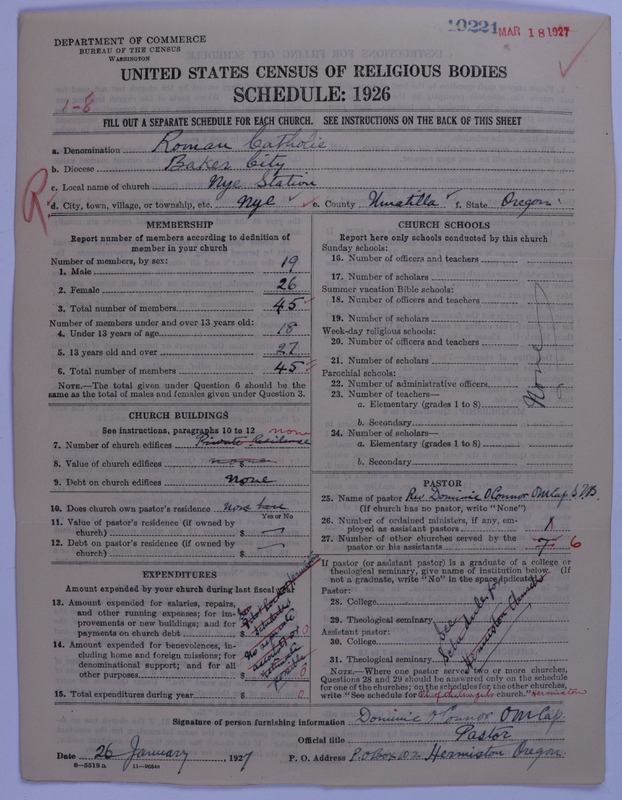 10221 MAR 18 1927
DEPARTMENT OF COMMERCE
BUREAU OF THE CENSUS
WASHINGTON
UNITED STATES CENSUS OF RELIGIOUS BODIES
SCHEDULE: 1926
1-8
FILL OUT A SEPARATE SCHEDULE FOR EACH CHURCH. SEE INSTRUCTIONS ON THE BACK OF THIS SHEET
a. Denomination Roman Catholic
b. Diocese Baker City
c. Local name of church Nye Station
R. d. City, town, village, or township, etc. Nye e. County Umatilla f. State Oregon
MEMBERSHIP
Report number of members according to definition of
member in your church
Number of members, by sex:
1. Male 19
2. Female 26
3. Total number of members 45
Number of members under and over 13 years old:
4. Under 13 years of age 18
5. 13 years old and over 27
6. Total number of members 45
NOTE.—The total given under Question 6 should be the
same as the total of males and females given under Question 3.
CHURCH BUILDINGS
See instructions, paragraphs 10 to 12 none
7. Number of church edifices Private Residence
8. Value of church edifices $ none
9. Debt on church edifices none
10. Does church own pastor's residence None here
Yes or No
11. Value of pastor's residence (if owned by
church) $
12. Debt on pastor's residence (if owned by
church) $
EXPENDITURES
Amount expended by your church during last fiscal year
13. Amount expended for salaries, repairs,
and other running expenses; for im-
provements or new buildings; and for
payments on church debt $ 0
14. Amount expended for benevolences, in-
cluding home and foreign missions; for
denominational support; and for all
other purposes $ 0
15. Total expenditures during year $ 0
CHURCH SCHOOLS
Report here only schools conducted by this church
Sunday schools:
16. Number of officers and teachers
17. Number of scholars
Summer vacation Bible schools:
18. Number of officers and teachers
19. Number of scholars
Week-day religious schools:
20. Number of officers and teachers
21. Number of scholars
Parochial schools:
22. Number of administrative officers
23. Number of teachers—
a. Elementary (grades 1 to 8)
b. Secondary
24. Number of scholars—
a. Elementary (grades 1 to 8)
b. Secondary
None
PASTOR
25. Name of pastor Rev Dominic O'Connor OMCap
(If church has no pastor, write "None")
26. Number of ordained ministers, if any, em-
ployed as assistant pastors 1
27. Number of other churches served by the
pastor or his assistants 7 6
If pastor (or assistant pastor) is a graduate of a college or
theological seminary, give name of institution below. (If
not a graduate, write "No" in the space indicated)
Pastor:
28. College
29. Theological seminary
Assistant pastor:
30. College
31. Theological seminary
See Schedule for Hermiston Church
NOTE.—Where one pastor served two or more churches,
Questions 28 and 29 should be answered only on the schedule
for one of the churches; on the schedules for the other churches,
write "See schedule for church." Hermiston
Signature of person furnishing information Dominic O'Connor OMCap.
Official title Pastor
Date 26 January 1927 P. O. Address P.O Box Hermiston Oregon.
8—5518a 11—9684